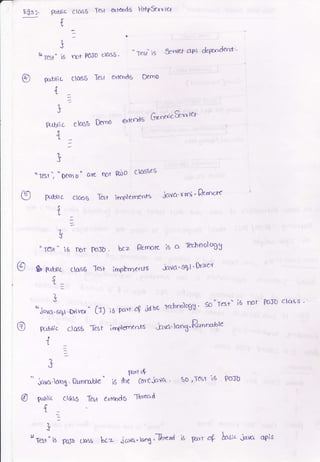 Eg3:- public class Test extends HttpServlet
{
}
"Test" is not POJO class. "Test" is Servlet api dependent.
④ public class Test extends Demo
{
}
public class Demo extends GenericServlet
{
}
"Test", "Demo" are not POJO classes
⑤ public class Test implements java.rmi.Remote
{
}
"Test" is not POJO. bcz Remote is a Technology
⑥ public class Test implements java.sql.Driver
{
}
"java.sql.Driver" (I) is part of jdbc Technology. So "Test" is not POJO class.
⑦ public class Test implements java.lang.Runnable
{
}
"java.lang.Runnable" is the part of core java. So, Test is POJO
⑧ public class Test extends Thread
{
}
"Test" is pojo class bcz java.lang.Thread is part of basic java apis